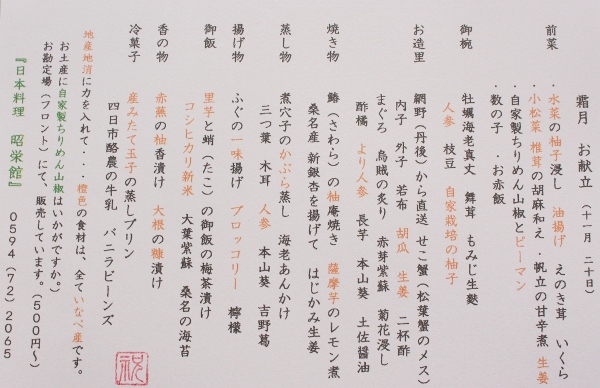 霜月　お献立　（十一月　二十日）
前菜
・水菜の柚子浸し　油揚げ　えのき茸　いくら
・小松菜　椎茸の胡麻和え　・帆立の甘辛煮　生姜
・自家製ちりめん山椒とピーマン
・数の子　・お赤飯
御椀
牡蠣海老真丈　舞茸　もみじ生麩
人参　枝豆　自家栽培の柚子
お造里
網野（丹後）から直送　せこ蟹（松葉蟹のメス）
内子　外子　若布　胡瓜　生姜　二杯酢
まぐろ　烏賊の炙り　赤芽紫蘇　菊花浸し
酢橘　より人参　長芋　本山葵　土佐醤油
焼き物
鰆（さわら）の柚庵焼き　薩摩芋のレモン煮
桑名産　新銀杏を揚げて　はじかみ生姜
蒸し物
煮穴子のかぶら蒸し　海老あんかけ
三つ葉　木耳　人参　本山葵　吉野葛
揚げ物
ふぐの一味揚げ　ブロッコリー　檸檬
御飯
里芋と蛸（たこ）の御飯の梅茶漬け
コシヒカリ新米　大葉紫蘇　桑名の海苔
香の物
赤蕪の柚香漬け　大根の糠漬け
冷菓子
産みたて玉子の蒸しプリン
四日市酪農の牛乳　バニラビーンズ
地産地消に力を入れて・・橙色の食材は、全ていなべ産です。
お土産に自家製ちりめん山椒はいかがですか。
お勘定場（フロント）にて、販売しています。（500円〜）
『日本料理　昭栄館』　0594（72）2065
祝